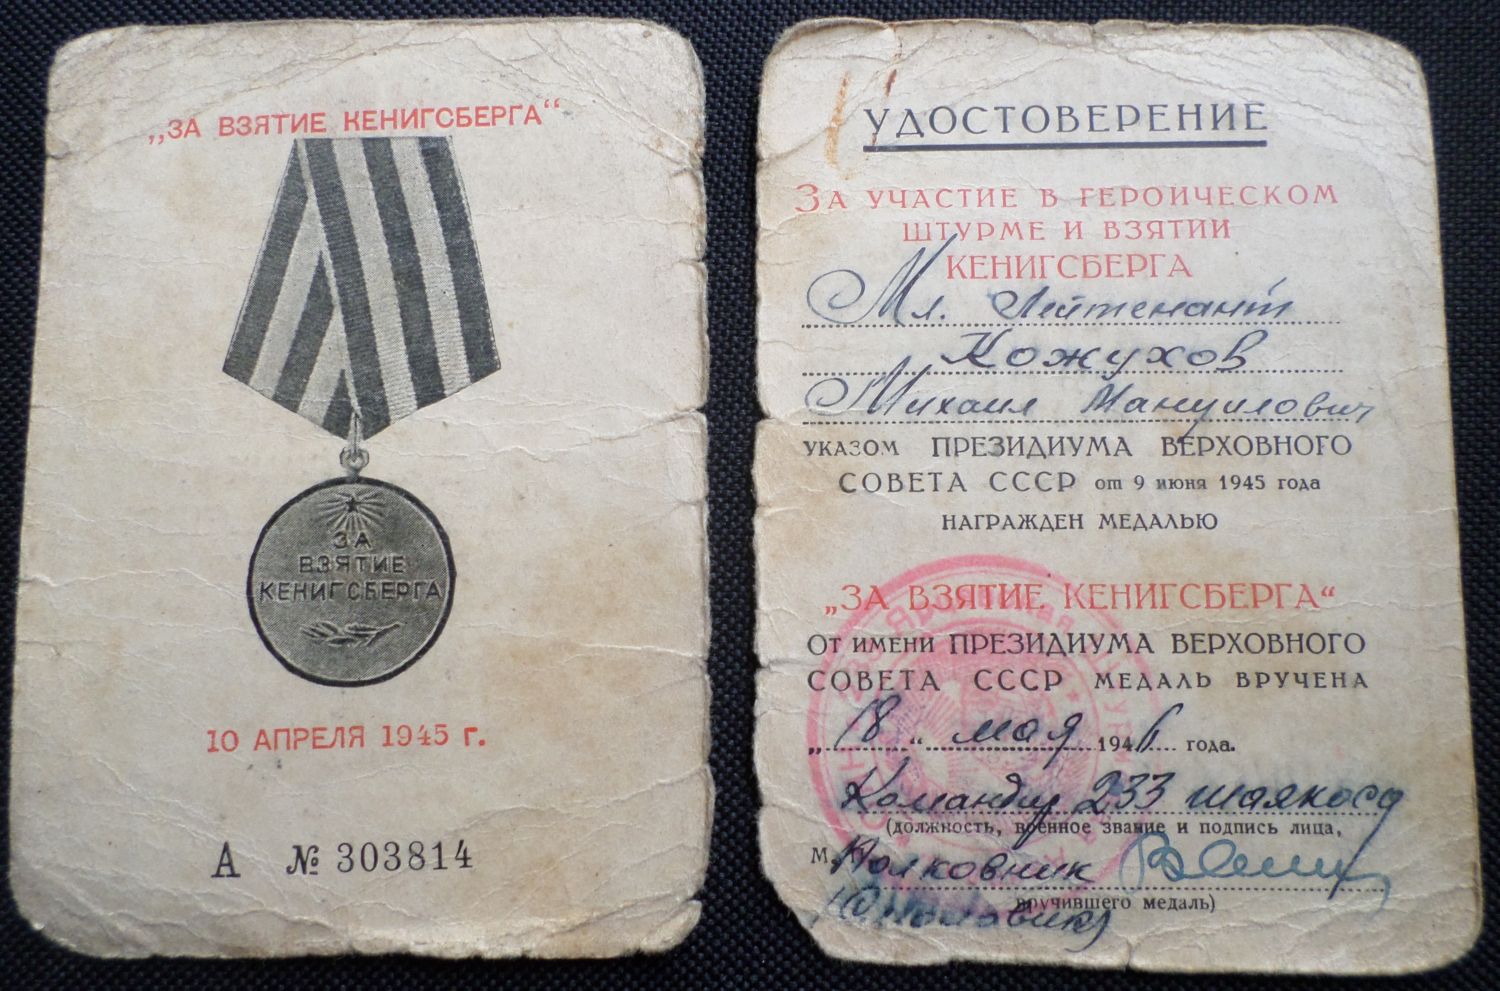 „ЗА ВЗЯТИЕ КЕНИГСБЕРГА“
ЗА
ВЗЯТИЕ
КЕНИГСБЕРГА
10 АПРЕЛЯ 1945 г.
А № 303814
УДОСТОВЕРЕНИЕ
ЗА УЧАСТИЕ В ГЕРОИЧЕСКОМ
ШТУРМЕ И ВЗЯТИИ
КЕНИГСБЕРГА
Мл. Лейтенант
Кожухов
Михаил Мануилович
УКАЗОМ ПРЕЗИДИУМА ВЕРХОВНОГО
СОВЕТА СССР от 9 июня 1945 года
НАГРАЖДЕН МЕДАЛЬЮ
„ЗА ВЗЯТИЕ КЕНИГСБЕРГА“
ОТ ИМЕНИ ПРЕЗИДИУМА ВЕРХОВНОГО
СОВЕТА СССР МЕДАЛЬ ВРУЧЕНА
„18“ мая 1946 года.
Командир 233
(должность, военное звание и подпись лица,
М. Полковник
вручившего медаль)